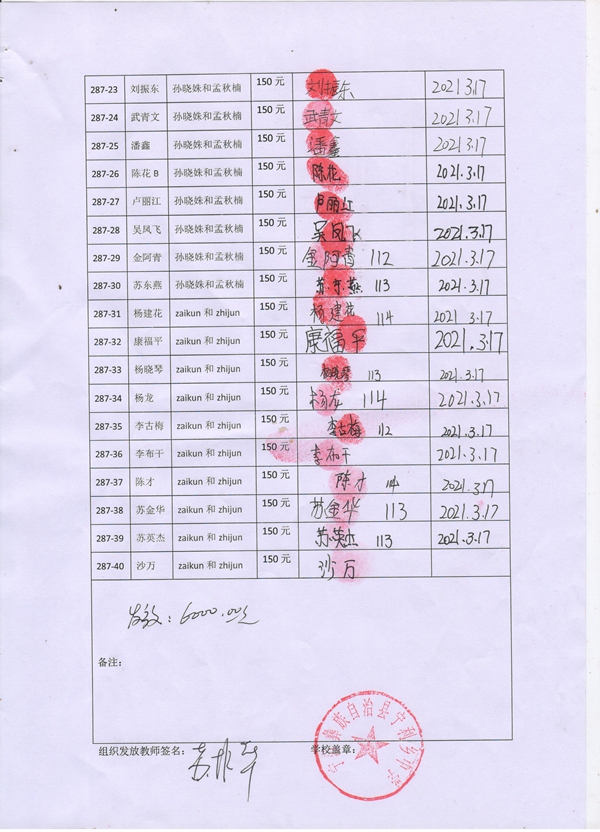 287-23 刘振东 孙晓姝和孟秋楠 150元 刘振东 2021.3.17
287-24 武青文 孙晓姝和孟秋楠 150元 武青文 2021.3.17
287-25 潘鑫 孙晓姝和孟秋楠 150元 潘鑫 2021.3.17
287-26 陈花B 孙晓姝和孟秋楠 150元 陈花 2021.3.17
287-27 卢丽江 孙晓姝和孟秋楠 150元 卢丽江 2021.3.17
287-28 吴凤飞 孙晓姝和孟秋楠 150元 吴凤飞 2021.3.17
287-29 金阿青 孙晓姝和孟秋楠 150元 金阿青 112 2021.3.17
287-30 苏东燕 孙晓姝和孟秋楠 150元 苏东燕 113 2021.3.17
287-31 杨建花 zaikun 和 zhijun 150元 杨建花 114 2021 3.17
287-32 康福平 zaikun 和 zhijun 150元 康福平 2021.3.17
287-33 杨晓琴 zaikun 和 zhijun 150元 杨晓琴 113 2021.3.17
287-34 杨龙 zaikun 和 zhijun 150元 杨龙 114 2021.3.17
287-35 李古梅 zaikun 和 zhijun 150元 李古梅 112 2021.3.17
287-36 李布干 zaikun 和 zhijun 150元 李布干 2021.3.17
287-37 陈才 zaikun 和 zhijun 150元 陈才 114 2021.3.17
287-38 苏金华 zaikun 和 zhijun 150元 苏金华 113 2021.3.17
287-39 苏英杰 zaikun 和 zhijun 150元 苏英杰 113 2021.3.17
287-40 沙万 zaikun 和 zhijun 150元 沙万
发放：6000.00元
备注：
组织发放教师签名： 学校盖章：